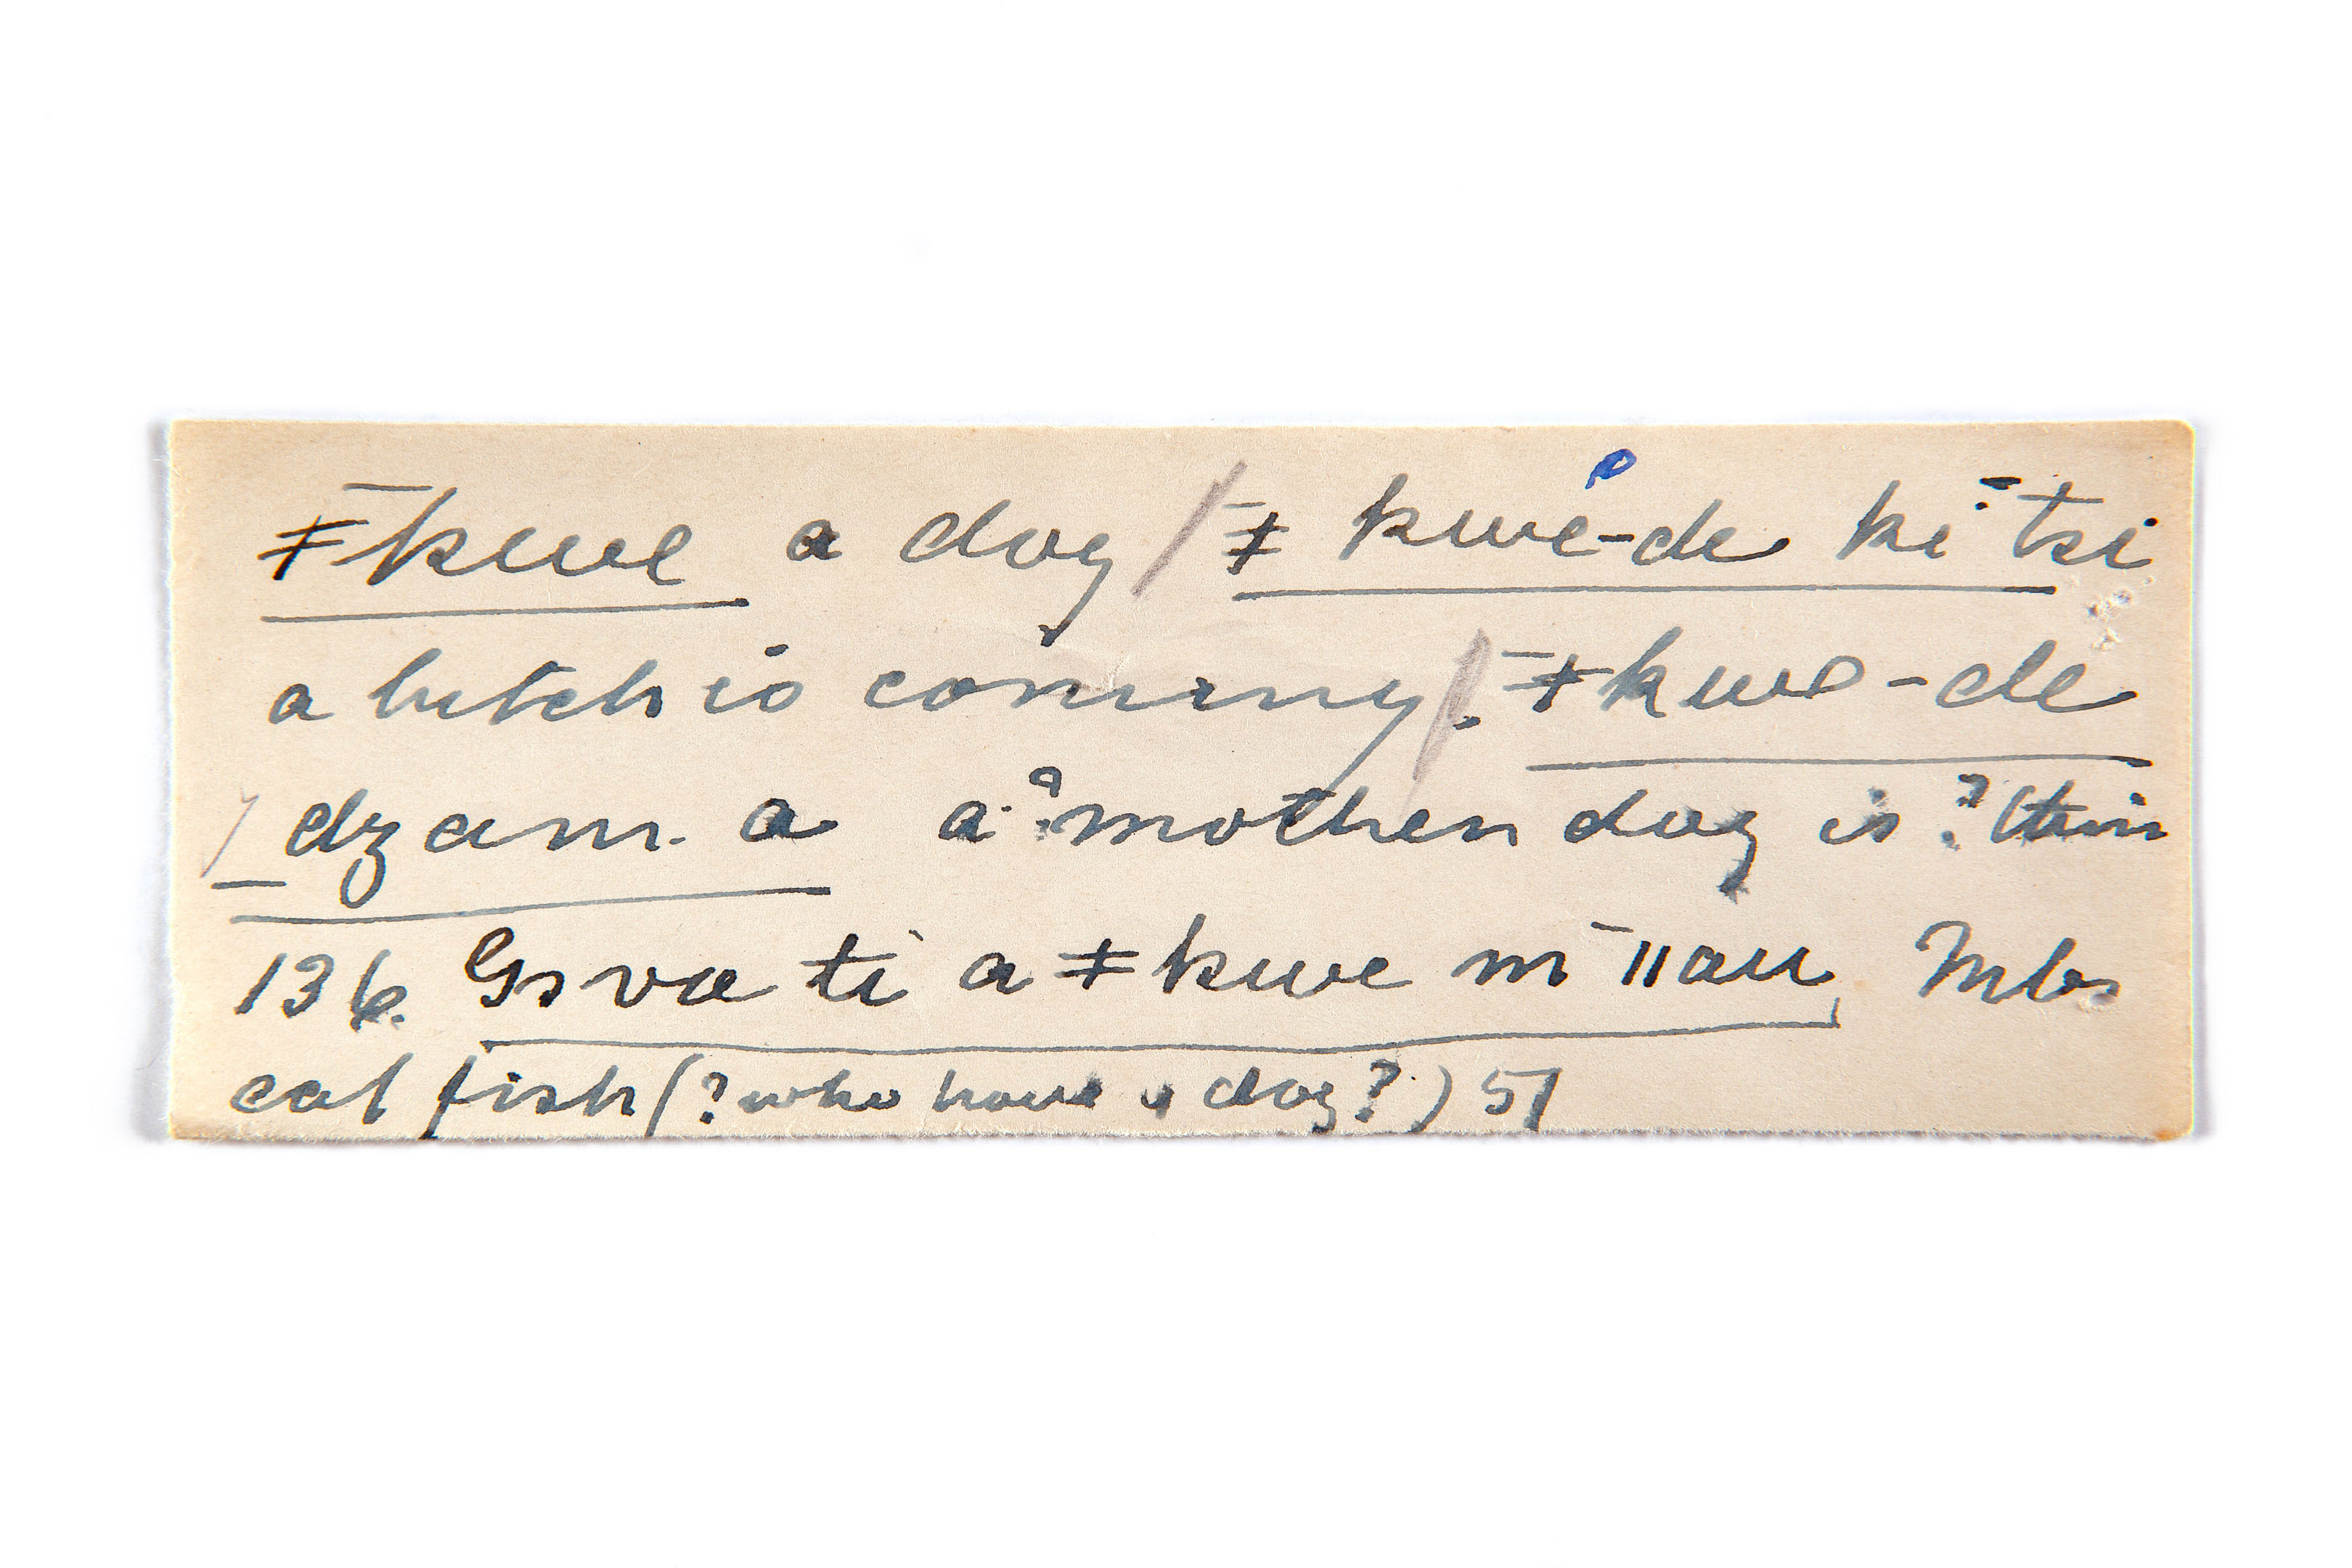 ǂ¯kwe a dog / ¯ǂ kwe-de ki ¯tsi
a bitch is coming /. ¯ǂkwe-de
/ _dzam. a a ?mother dog is ? thin
136. Gova ti a ǂkwe m ¯ǁau, Mbo
cat fish (? who have a dog?) 51